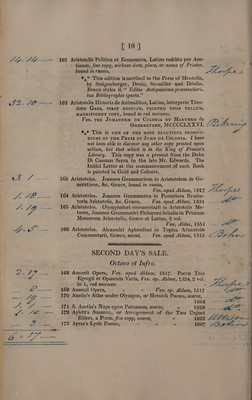 [ 10 ]
14..14.— 161 Aristotelis Politica et Economica, Latine reddita per Are-
tinum, fine copy, without date, place, or name of Printer,
bound in russia, Thorpe
*** This edition is ascribed to the Press of Mentelin,
by Stoigenberger, Denis, Seemiller and Dibdin.
Ernen styles it " Editio Antiquissima præstantiori-
bus Bibliographis ignota."
32. 10.— 162 Aristotelis Historia de Animalibus, Latine, interprete Theo-
doro Gaza, FIRST EDITION, PRINTED UPON VELLUM,
MAGNIFICENT COPY, bound in red morocco, Pickering
Ven. per JOHANNEM DE COLONIA ET MANTHEN DE
GHERRETZEM, MCCCCLXXVI.
*** THIS IS ONE OF THE MOST BEAUTIFUL PRODUC-
TIONS OF THE PRESS OF JOHN DE COLONIA. I have
not been able to discover any other copy printed upon
vellum, but that which is in the King of France's
Library. This copy was a present from the Duke
Di Cassano Serra to the late Mr. Edwards. The
Initial Letter at the commencement of each Book
is painted in Gold and Colours.
3. 1 163 Aristoteles. Joannes Grammaticus in Aristotelem de Ge-
neratione, &c. Græce, bound in russia,
Ven. apud Aldum, 1527 Thorpe
1..18.— 164 Aristoteles. Joannes Grammaticus in Posteriora Resolu-
toria Aristotelis, &c. Græce, Ven. apud Aldum, 1534
1..19 165 Aristoteles. Olympiodori commentarii in Aristotelis Me-
teora, Joannes Grammatici Philoponi Scholia in Primum
Meteorum Aristotelis, Græce et Latine, 2 vol.
Ven. Aldus, 1551
4..5 166 Aristoteles. Alexandri Aphrodisei in Topica Aristotelis
Commentarii, Græce, uncut. Ven. apud Aldum, 1513 Bohn
SECOND DAY'S SALE.
Octavo et Infrà.
168 Ausonii Opera, Ven. apud Aldum, 1517. Poetæ Tres
Egregii et Opuscula Varia, Ven. ap. Aldum, 1534, 2 vol.
in 1, red morocco. Thorpe
169 Ausonii Opera, Ven. ap. Aldum, 1517
170 Austin's Atlas under Olympus, or Heroick Poems, scarce,
1664
171 S. Austin's Naps upon Parnassus, scarce, 1658
172 Aylett's Susanna, or Arraignment of the Two Unjust
Elders, a Poem, fine copy, scarce, 1622
173 Ayres's Lyric Poems, 1687